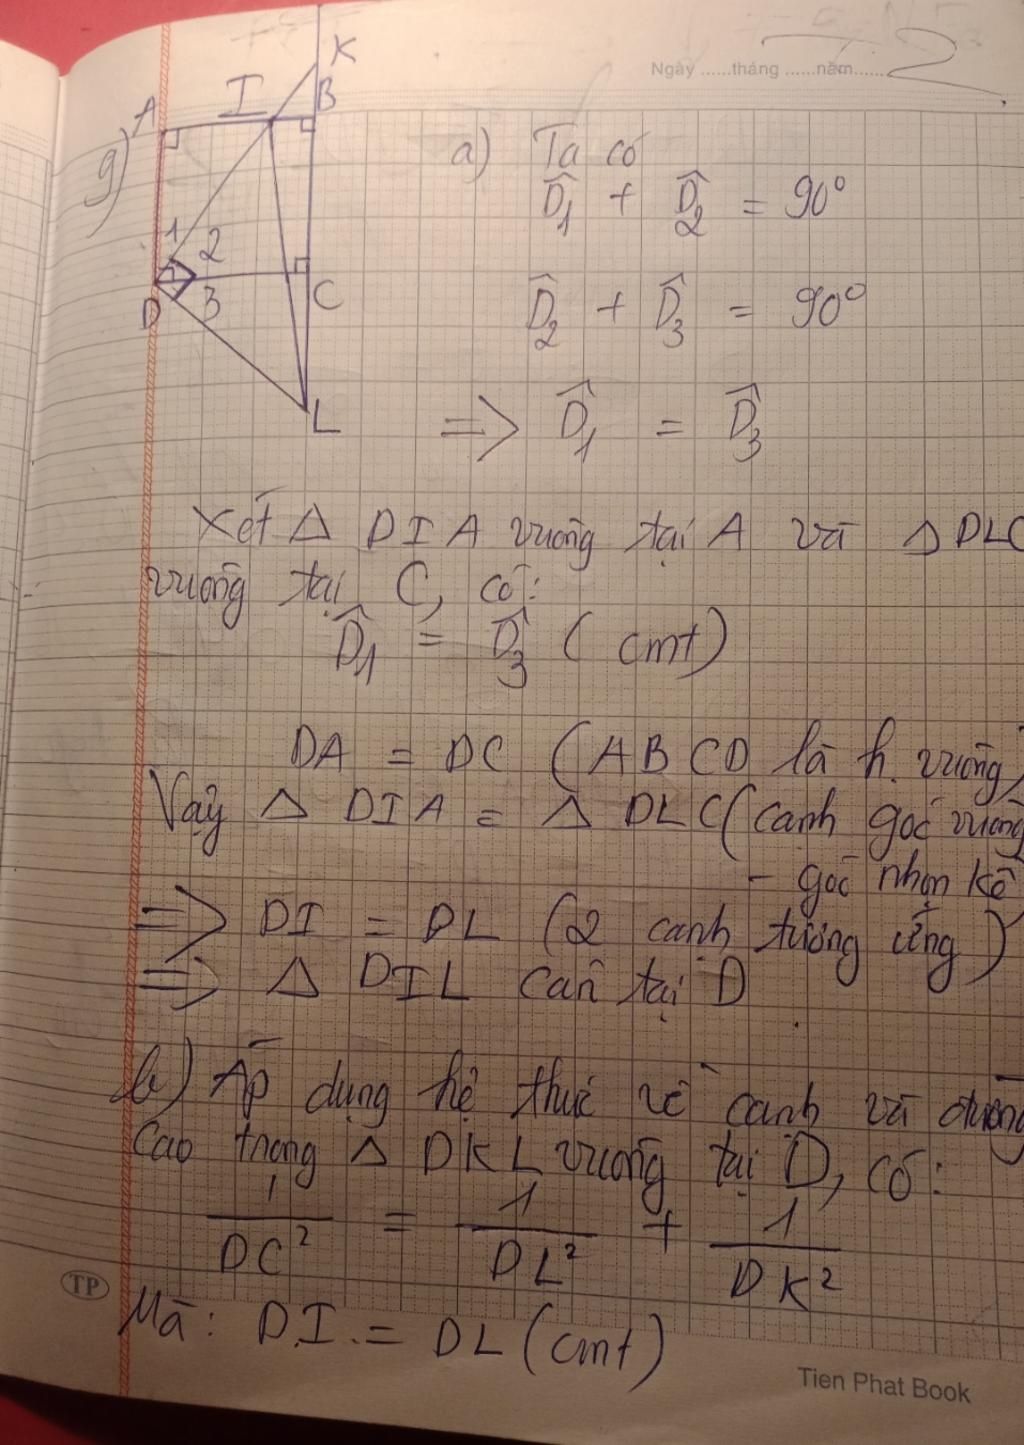 Ngày ......tháng ......năm...... 2
K
I
B
A
9)
1
2
D
3
C
L
a) Ta có
D̂₁ + D̂₂ = 90°
D̂₂ + D̂₃ = 90°
=> D̂₁ = D̂₃
Xét Δ DIA vuông tại A và Δ DLC
vuông tại C, có:
D̂₁ = D̂₃ (cmt)
DA = DC (ABCD là h. vuông)
Vậy Δ DIA = Δ DLC (cạnh góc vuông
- góc nhọn kề
=> DI = DL (2 cạnh tương ứng)
=> Δ DIL cân tại D
b) Áp dụng hệ thức về cạnh và đường
cao trong Δ DKL vuông tại D, có:
1/DC² = 1/DL² + 1/DK²
Mà: DI = DL (cmt)
TP
Tien Phat Book